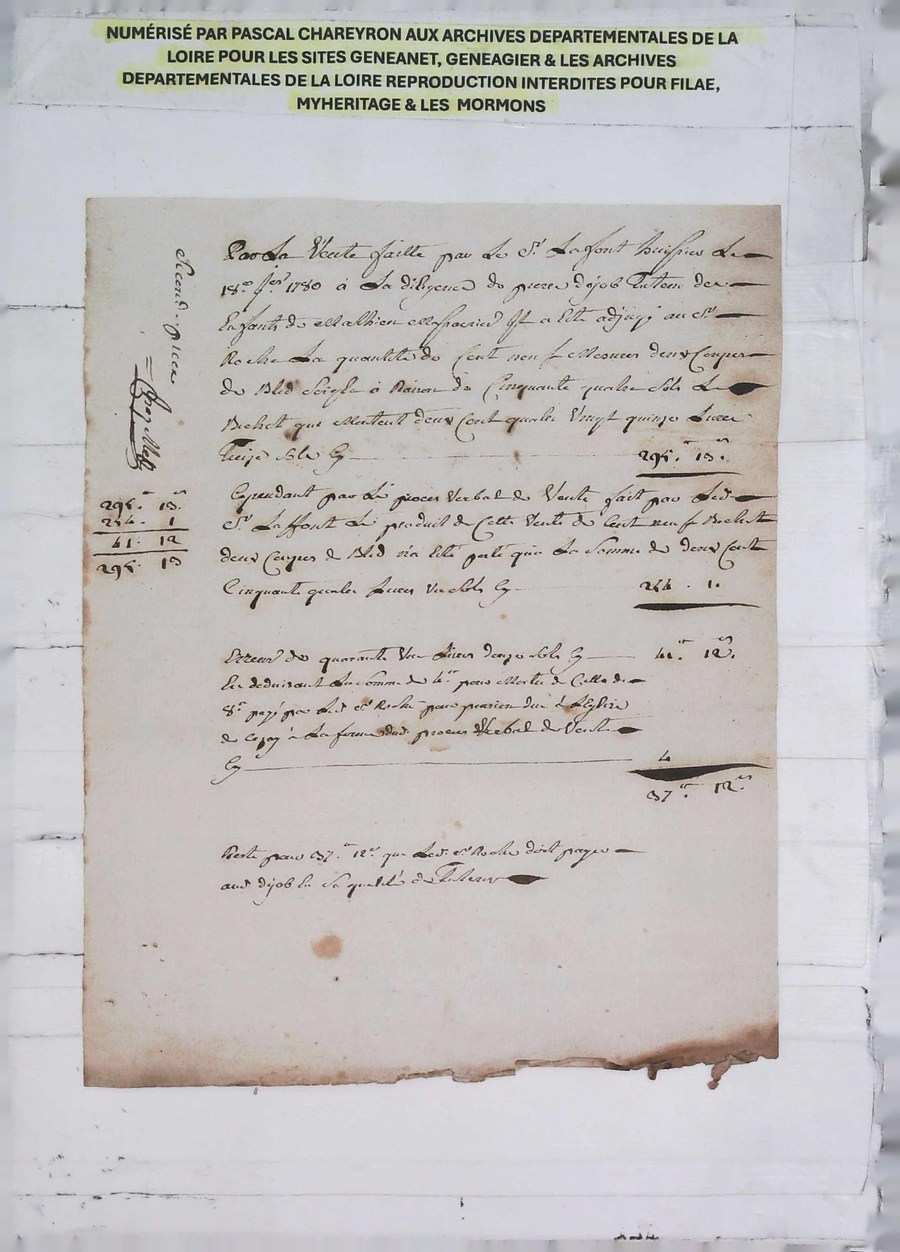 NUMÉRISÉ PAR PASCAL CHAREYRON AUX ARCHIVES DEPARTEMENTALES DE LA
LOIRE POUR LES SITES GENEANET, GENEAGIER & LES ARCHIVES
DEPARTEMENTALES DE LA LOIRE REPRODUCTION INTERDITES POUR FILAE,
MYHERITAGE & LES MORMONS
Par La Vente faitte par Le Sr Laffont huissier Le
18e 1780 à La diligence de pierre dejob tuteur des
Enfants de Mathieu Il a Eté adjugé au Sr
Roche La quantité de Cent neuf Mesures deux Coupes
de Bled Seigle à Raison de Cinquante quatre Sols Le
Bichet qui Montent deux Cent quatre Vingt quinze Livres
treize Sols Cy 295. 13.
Cependant par Le proces Verbal de Vente fait par Led.
Sr Laffont Le produit de Cette Vente de Cent neuf Bichet
deux Coupes de Bled n'a Eté porté qu'a La Somme de deux Cent
Cinquante quatre Livres un Sols Cy 254. 1.
Erreur de quarante Une Livres douze Sols Cy 41. 12.
En deduisant La Somme de 4 pour Moitié de Celle de
8 payé par Led. Sr Roche pour pension due à L'Eglise
de à La forme dud. proces Verbal de Vente
Cy 4
37. 12.
Reste pour 37. 12. que Led. Sr Roche doit payer
aud. dejob En Sa qualité de Tuteur
Second. piece
295. 13.
254. 1
41. 12
295. 13